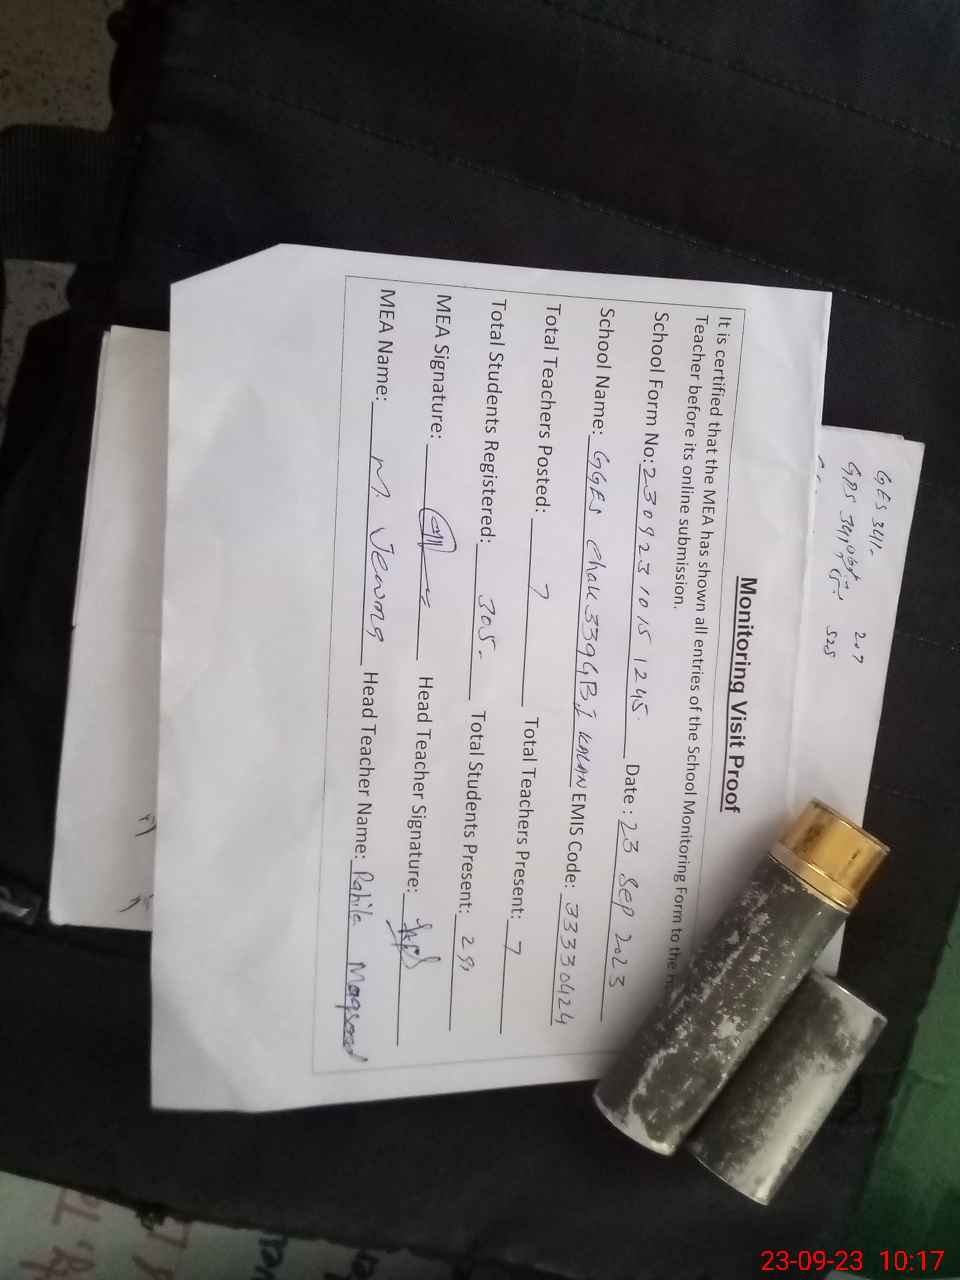 Monitoring Visit Proof
It is certified that the MEA has shown all entries of the School Monitoring Form to the
Teacher before its online submission.
School Form No: 230923 1015 1245 Date : 23 Sep 2023
School Name: GGES chak 339GB,I KALAN EMIS Code: 33330424
Total Teachers Posted: 7 Total Teachers Present: 7
Total Students Registered: 305- Total Students Present:
MEA Signature: Head Teacher Signature:
MEA Name: M. Head Teacher Name: Rahila Maqsood
GES 341-
GPS 341
207
525
23-09-23 10:17